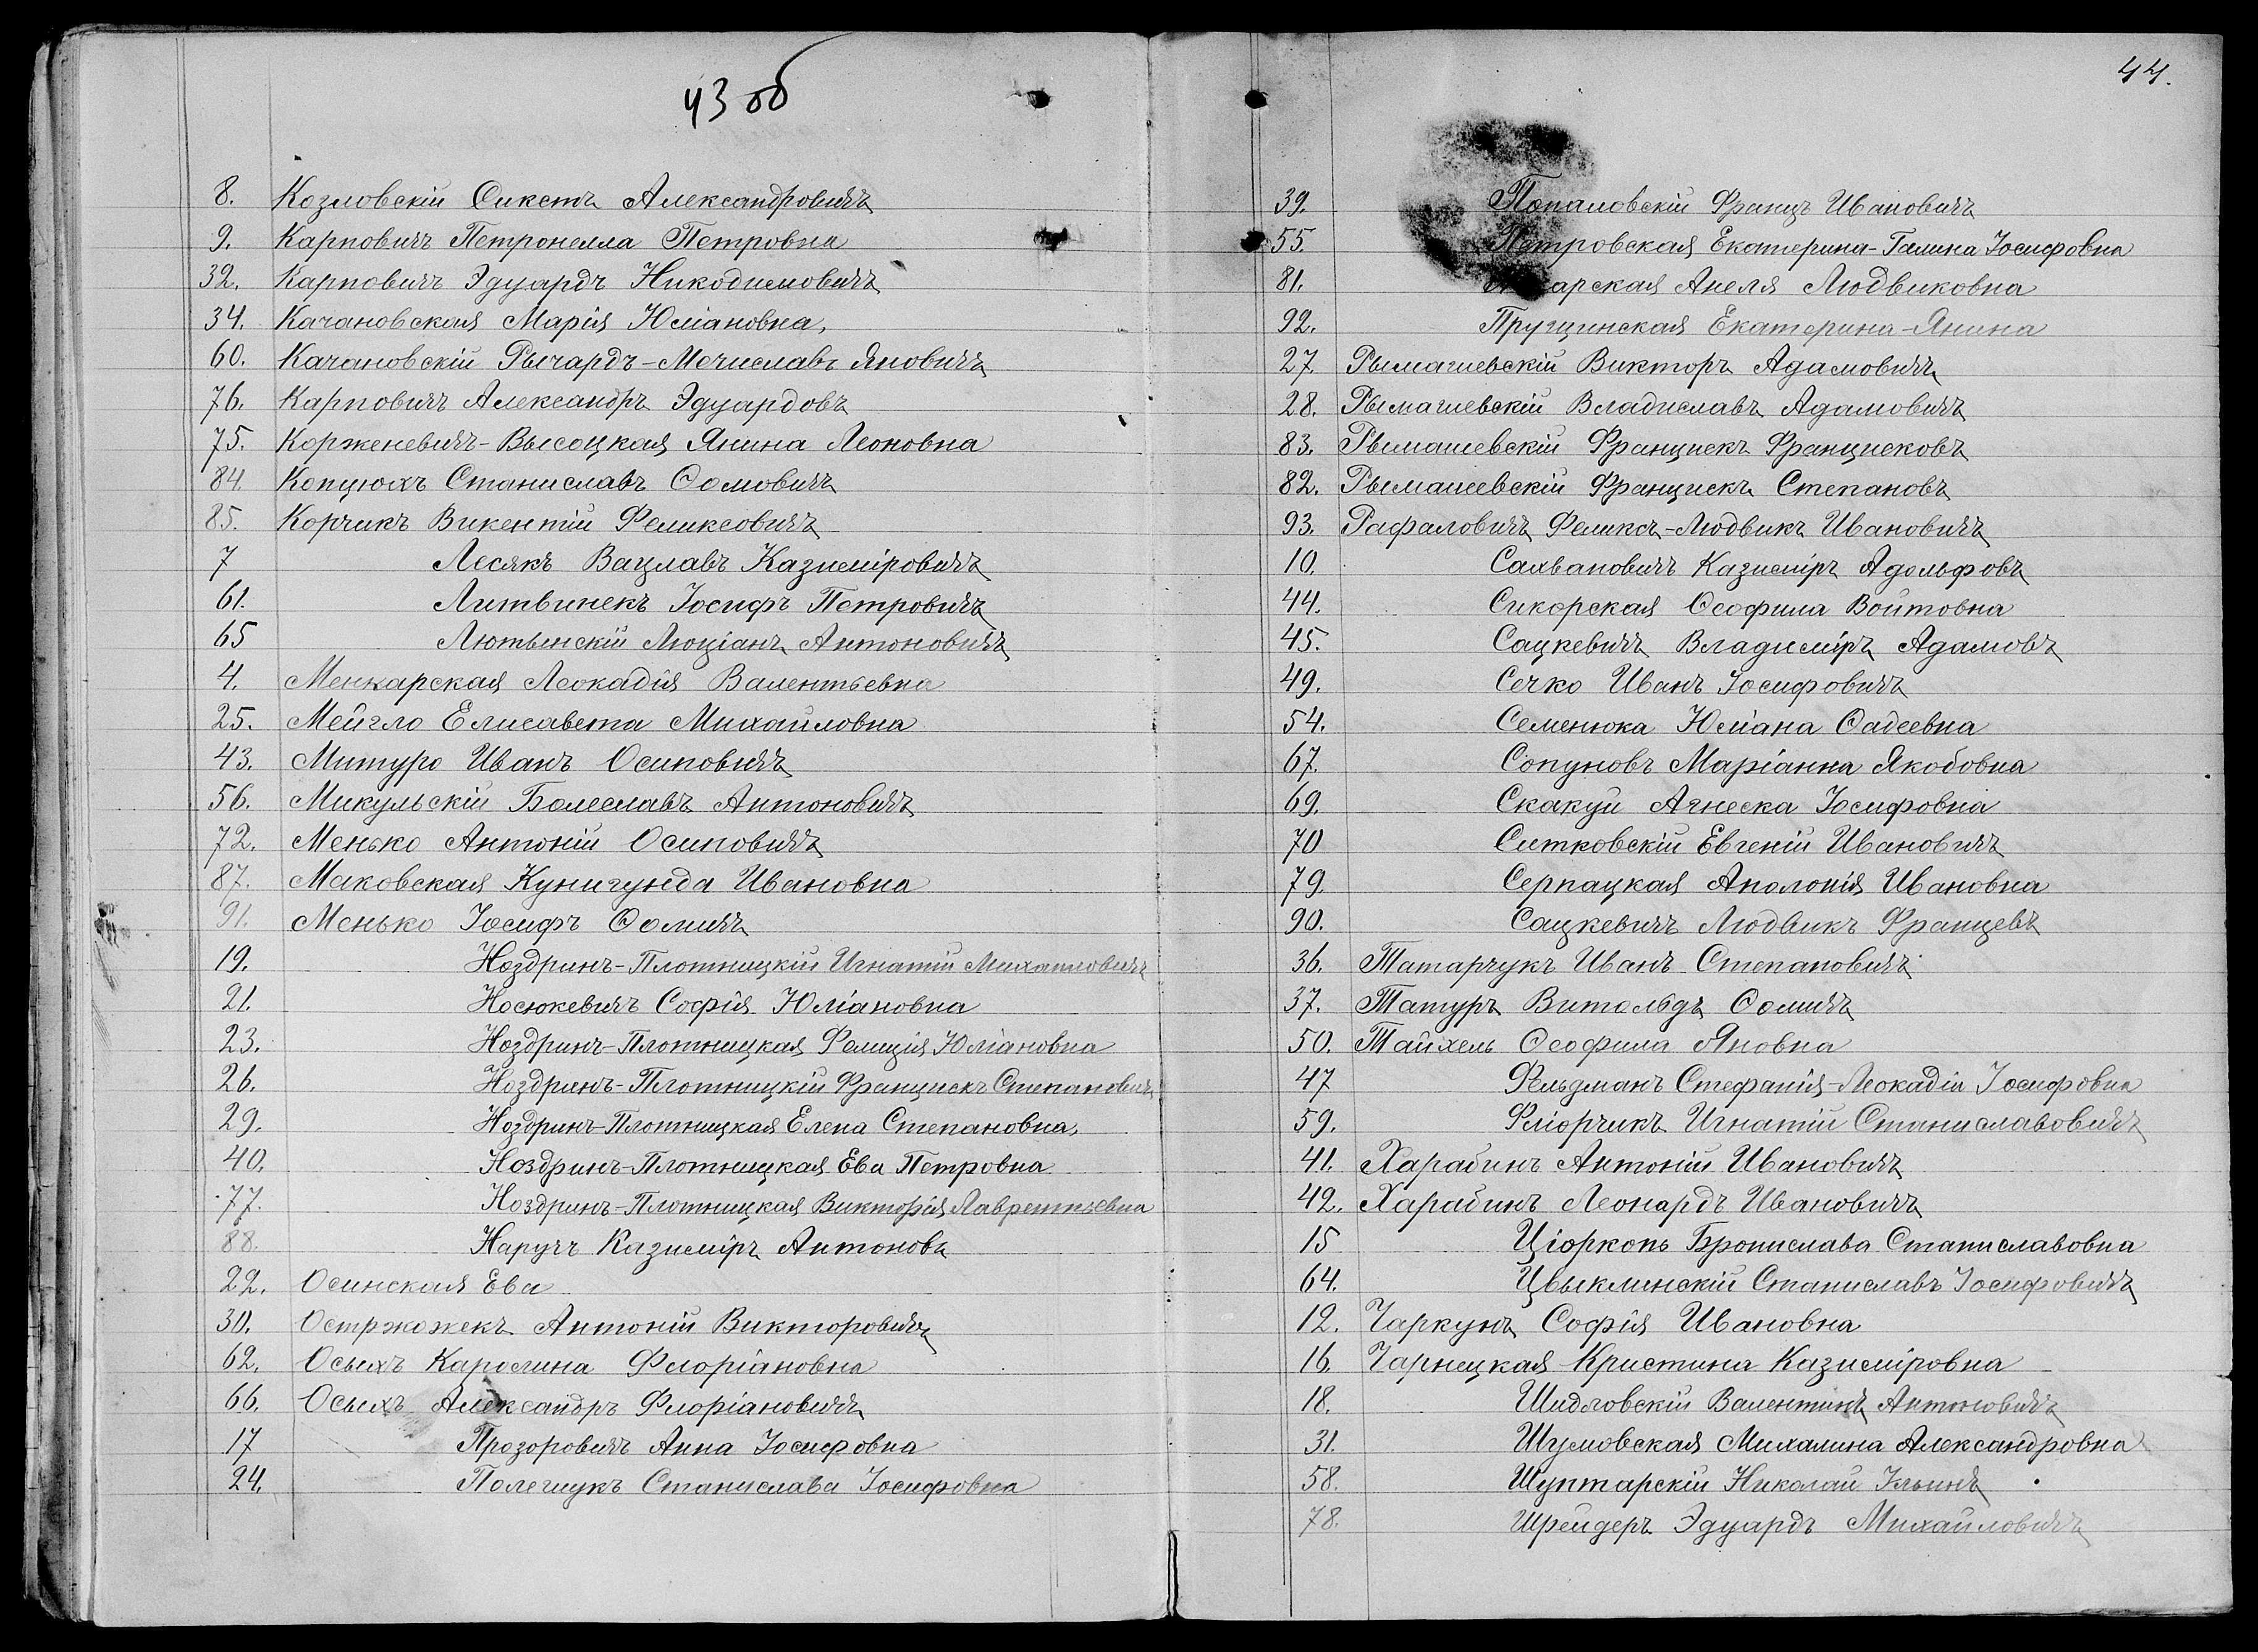 43 об
8. Козловскій Сикстъ Александровичъ
9. Карповичъ Петронелла Петровна
32. Карповичъ Эдуардъ Никодимовичъ
34. Качановская Марія Юліановна,
60. Качановскій Рычардъ-Мечиславъ Яновичъ
76. Карповичъ Александръ Эдуардовъ
75. Корженевичъ-Высоцкая Янина Леоновна
84. Копцюхъ Станиславъ Ѳомовичъ
85. Корчикъ Викентій Феликсовичъ
7 Лесякъ Вацлавъ Казиміровичъ
61. Литвинекъ Іосифъ Петровичъ
65 Лютынскій Люціанъ Антоновичъ
4. Менжарская Леокадія Валентьевна
25. Мейгло Елисавета Михайловна
43. Митуро Иванъ Осиповичъ
56. Микульскій Болеславъ Антоновичъ
72. Менько Антоній Осиповичъ
87. Маковская Кунигунда Ивановна
91. Менько Іосифъ Ѳомичъ
19. Ноздринъ-Плотницкій Игнатій Михайловичъ
21. Носюкевичъ Софія Юліановна
23. Ноздринъ-Плотницкая Фелиція Юліановна
26. Ноздринъ-Плотницкій Францискъ Степановичъ
29. Ноздринъ-Плотницкая Елена Степановна,
40. Ноздринъ-Плотницкая Ева Петровна
77. Ноздринъ-Плотницкая Викторія Лаврентьевна
88. Наручъ Казиміръ Антоновъ
22. Осинская Ева
30. Остржожекъ Антоній Викторовичъ
62. Осыхъ Каролина Флоріановна
66. Осыхъ Александръ Флоріановичъ
17 Прозоровичъ Анна Іосифовна
24. Полещукъ Станислава Іосифовна
44.
39. Попаловскій Францъ Ивановичъ
55. Петровская Екатерина-Галина Іосифовна
81. Анеля Людвиковна
92. Пругщинская Екатерина-Янина
27. Рымашевскій Викторъ Адамовичъ
28. Рымашевскій Владиславъ Адамовичъ
83. Рымашевскій Францискъ Францисковъ
82. Рымашевскій Францискъ Степановъ
93. Рафаловичъ Феликсъ-Людвикъ Ивановичъ
10. Сахвановичъ Казиміръ Адольфовъ
44. Сикорская Ѳеофила Войтовна
45. Сацкевичъ Владиміръ Адамовъ
49. Сечко Иванъ Іосифовичъ
54. Семенюка Юліана Ѳадеевна
67. Сопуновъ Маріанна Якобовна
69. Скакуй Агнеска Іосифовна
70 Ситковскій Евгеній Ивановичъ
79. Серпацкая Аполонія Ивановна
90. Сацкевичъ Людвикъ Францевъ
36. Татарчукъ Иванъ Степановичъ
37. Татуръ Витольдъ Ѳомичъ
50. Тайхель Ѳеофила Яновна
47 Фельдманъ Стефанія-Леокадія Іосифовна
59. Фліорчикъ Игнатій Станиславовичъ
41. Харабинъ Антоній Ивановичъ
42. Харабинъ Леонардъ Ивановичъ
15 Ціорконь Бронислава Станиславовна
64. Цвыклинскій Станиславъ Іосифовичъ
12. Чаркунъ Софія Ивановна
16. Чарнецкая Кристина Казиміровна
18. Шидловскій Валентинъ Антоновичъ
31. Шумовская Михалина Александровна
58. Шуптарскій Николай Ильинъ
78. Шрейдеръ Эдуардъ Михайловичъ